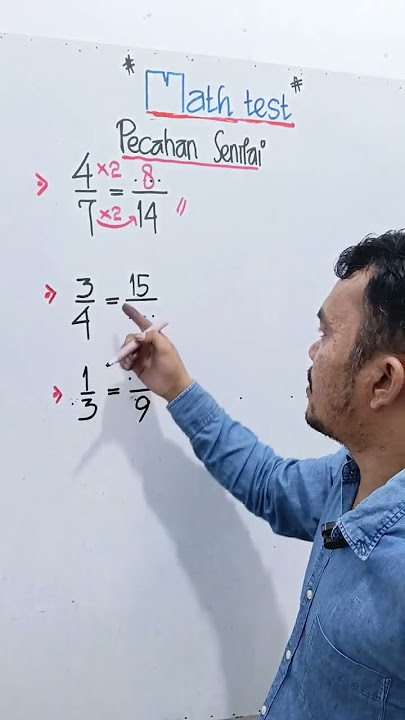 * Math test *
Pecahan Senilai
4/7 ×2 ×2 = 8/14 //
3/4 = 15/...
1/3 = .../9